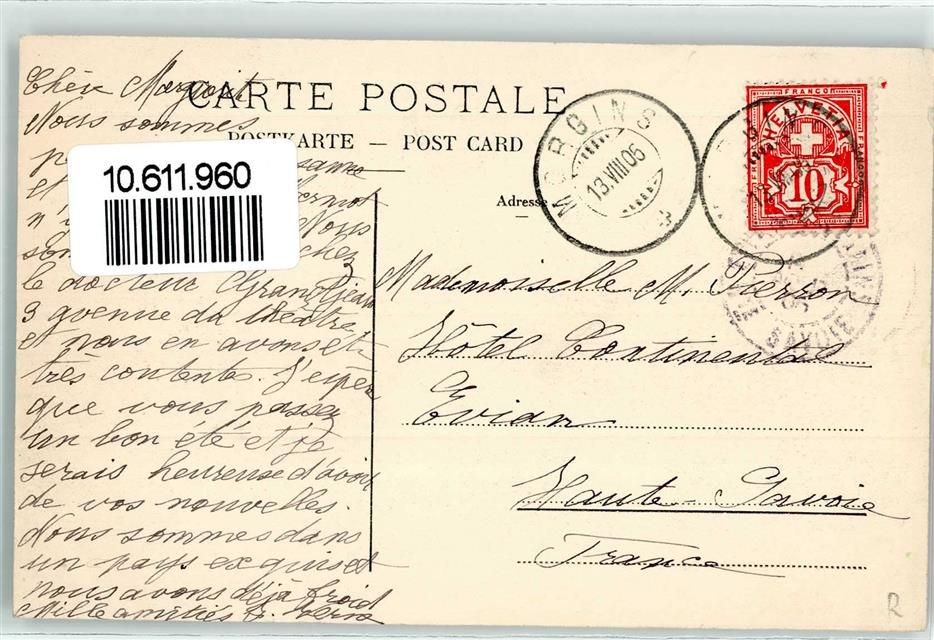 CARTE POSTALE
POSTKARTE — POST CARD
Adresse
10.611.960
MORGINS
13.VIII.05
FRANCO
HELVETIA
10
SAVOIE
Chère
Nous sommes
et
Nous
chez
le docteur
3 avenue du théâtre
et nous en avons été
très contente. J'espère
que vous passez
un bon été et je
serais heureuse d'avoir
de vos nouvelles.
Nous sommes dans
un pays exquis et
nous avons déjà froid
Mille amitiés
Mademoiselle M. Pierron
Hôtel Continental
Evian
Haute-Savoie
France
R